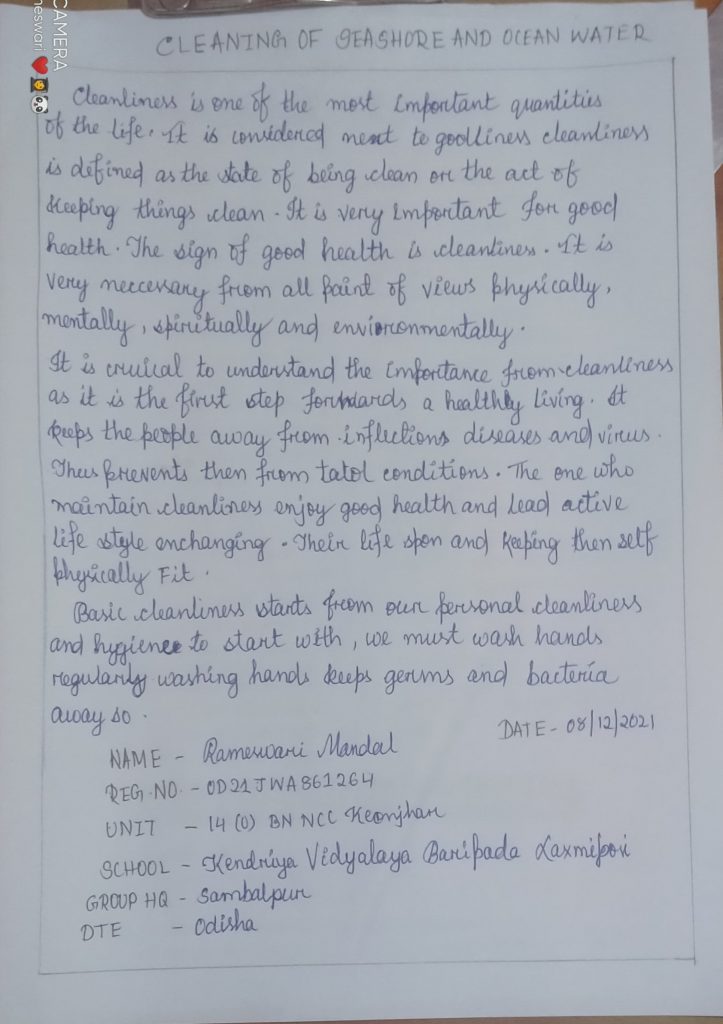 CAMERA
neswari
CLEANING OF SEASHORE AND OCEAN WATER
Cleanliness is one of the most important quantities
of the life. It is considered next to goodliness cleanliness
is defined as the state of being clean or the act of
keeping things clean. It is very important for good
health. The sign of good health is cleanliness. It is
very neccessary from all paint of views physically,
mentally, spiritually and envioronmentally.
It is cruical to understand the importance from cleanliness
as it is the first step forwards a healthly living. It
keeps the people away from inflections diseases and virus.
Thus prevents then from tatol conditions. The one who
maintain cleanliness enjoy good health and lead active
life style enchanging. Their life spon and keeping then self
physically Fit.
Basic cleanliness starts from our personal cleanliness
and hygiene to start with, we must wash hands
regularly washing hands keeps germs and bacteria
away so.
DATE - 08/12/2021
NAME - Rameswari Mandal
REG.NO. - OD21JWA861264
UNIT - 14 (O) BN NCC Keonjhar
SCHOOL - Kendriya Vidyalaya Baripada Laxmiposi
GROUP HQ - Sambalpur
DTE - Odisha